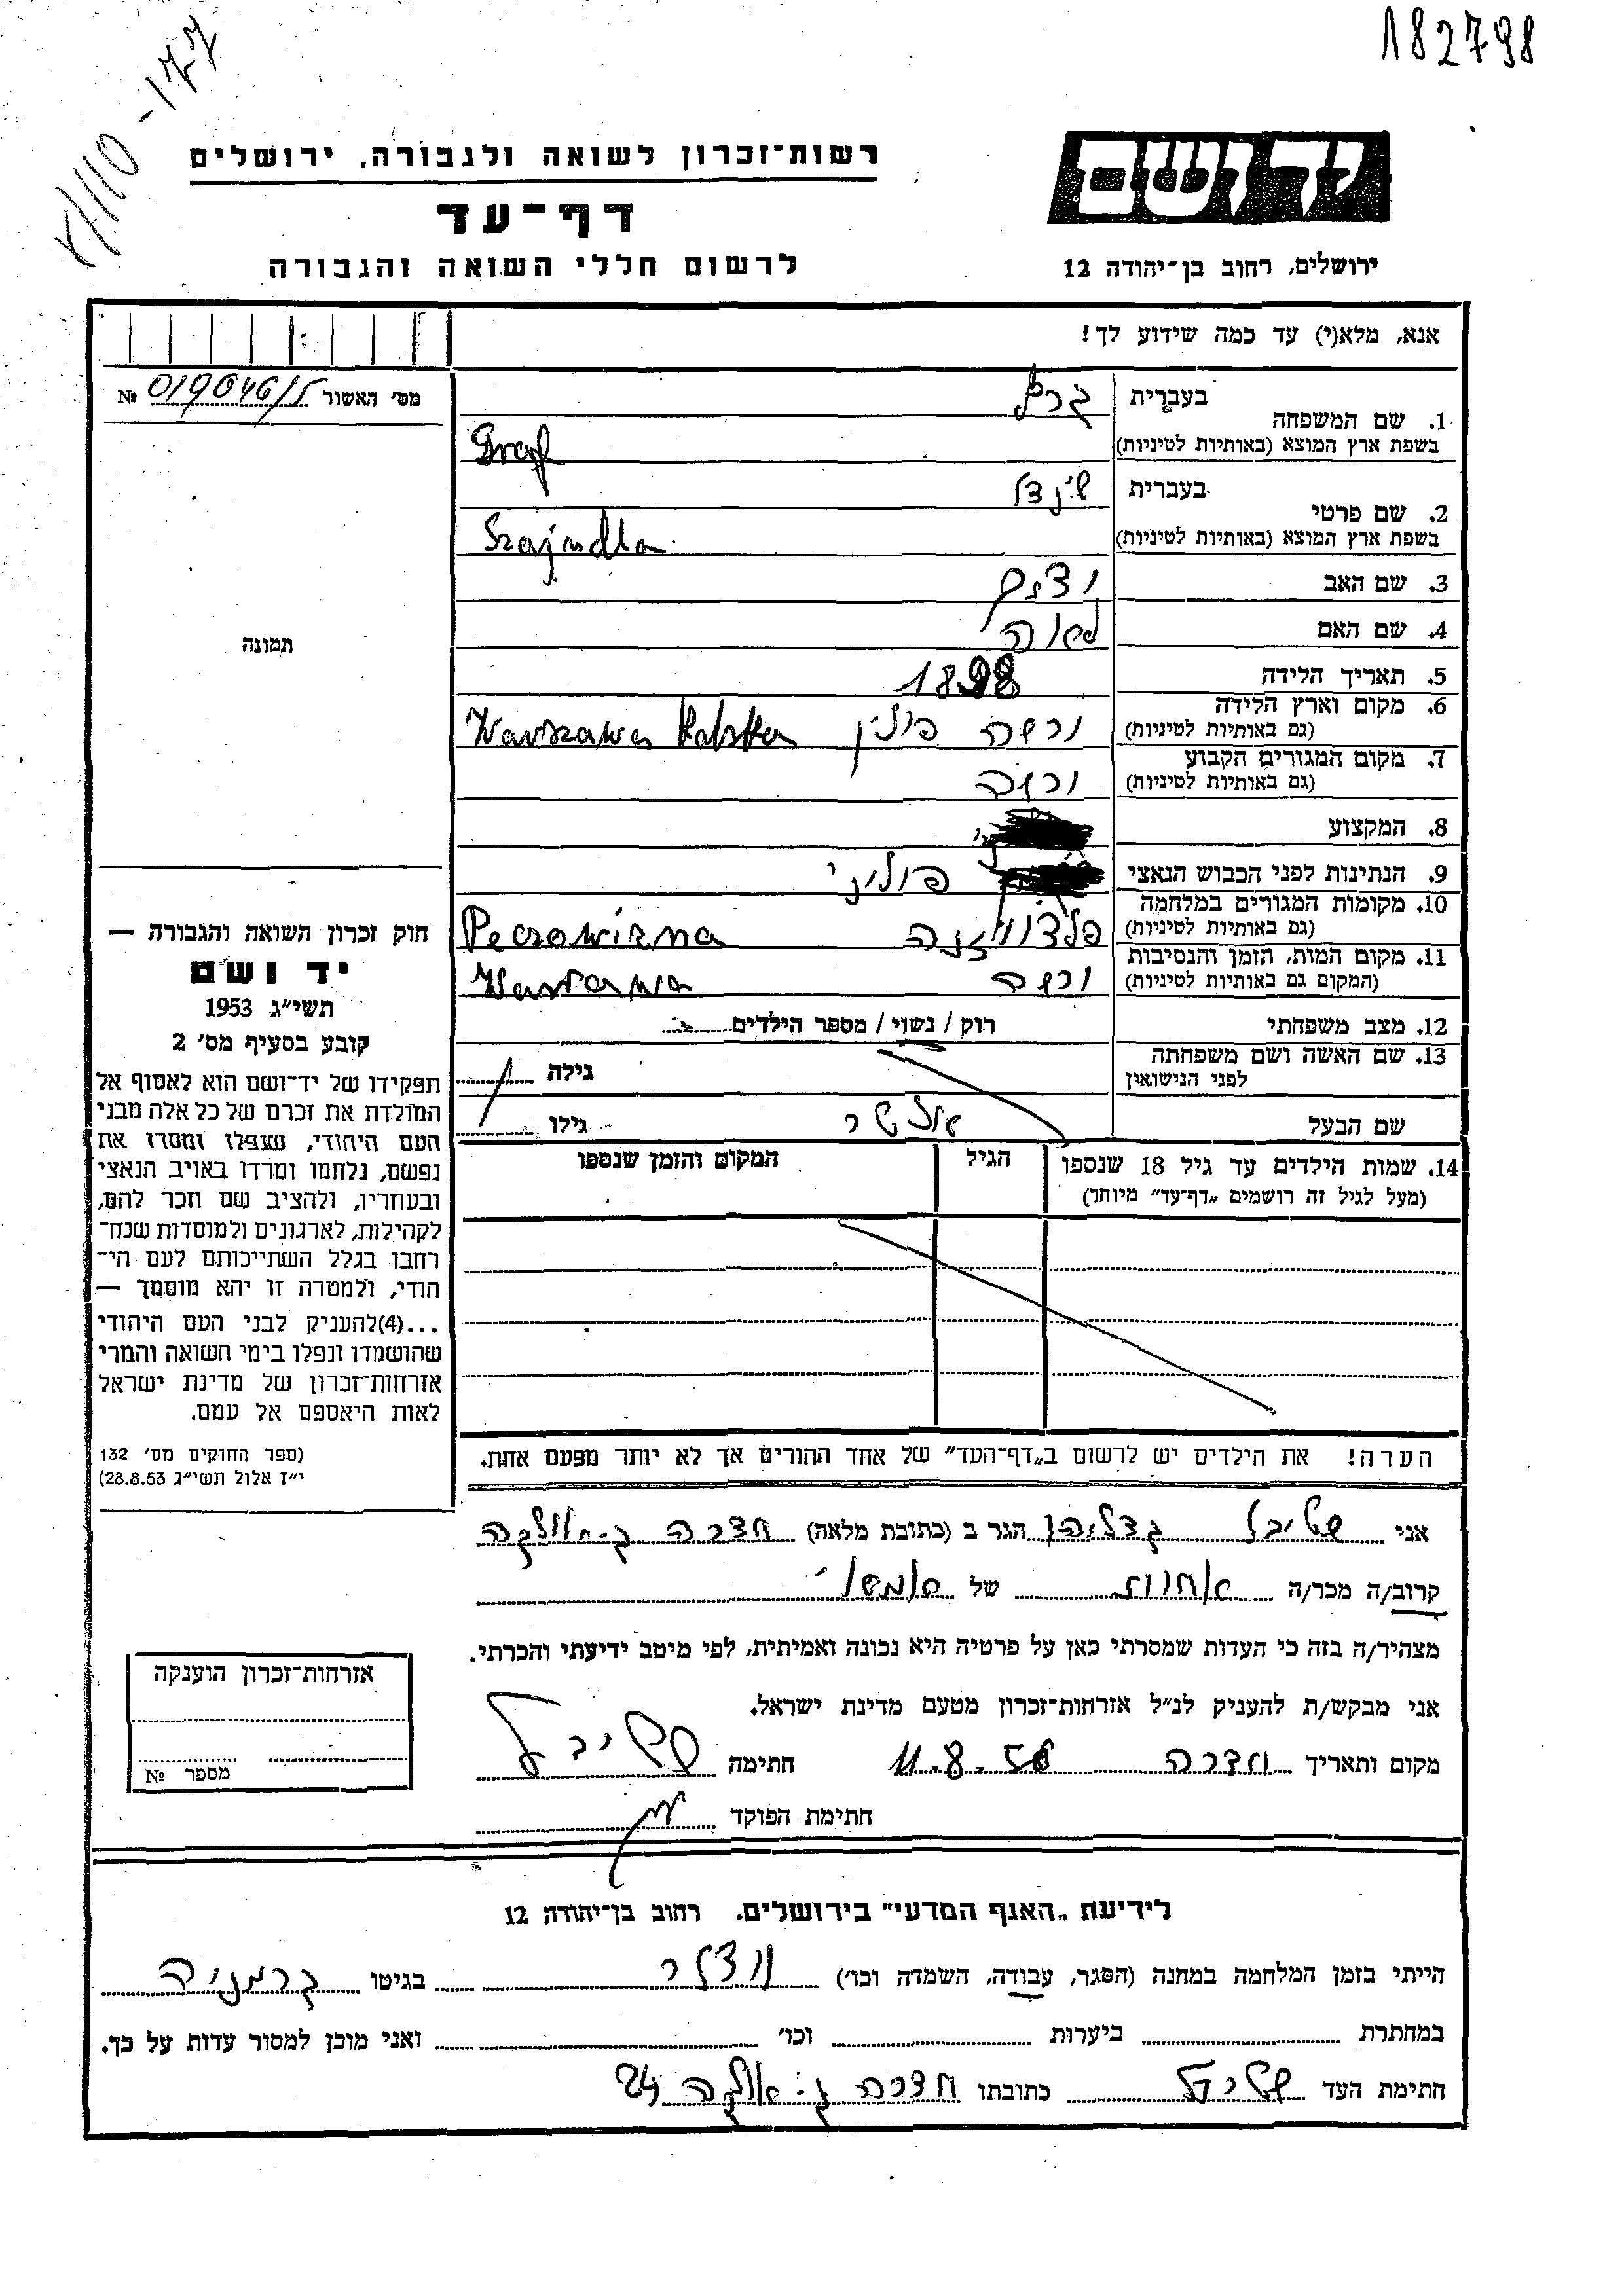 182798
רשות־זכרון לשואה ולגבורה, ירושלים
יד ושם
דף־עד
לרשום חללי השואה והגבורה
ירושלים, רחוב בן־יהודה 12
אנא, מלא(י) עד כמה שידוע לך!
מס׳ האשור №
1. שם המשפחה בעברית גרף
בשפת ארץ המוצא (באותיות לטיניות) Graf
2. שם פרטי בעברית שינדל
בשפת ארץ המוצא (באותיות לטיניות) Szajndla
3. שם האב
4. שם האם לאה
5. תאריך הלידה 1898
6. מקום וארץ הלידה ורשה פולין Warszawa Polska
(גם באותיות לטיניות)
7. מקום המגורים הקבוע ורשה
(גם באותיות לטיניות)
8. המקצוע
9. הנתינות לפני הכבוש הנאצי פולני
10. מקומות המגורים במלחמה
(גם באותיות לטיניות)
11. מקום המות, הזמן והנסיבות ורשה
(המקום גם באותיות לטיניות)
12. מצב משפחתי רוק / נשוי / מספר הילדים
13. שם האשה ושם משפחתה
לפני הנישואין גילה
שם הבעל אלטר גילו
14. שמות הילדים עד גיל 18 שנספו הגיל המקום והזמן שנספו
(מעל לגיל זה רושמים „דף־עד״ מיוחד)
הערה! את הילדים יש לרשום ב„דף־העד״ של אחד ההורים אך לא יותר מפעם אחת.
תמונה
חוק זכרון השואה והגבורה —
יד ושם
תשי״ג 1953
קובע בסעיף מס׳ 2
תפקידו של יד־ושם הוא לאסוף אל
המולדת את זכרם של כל אלה מבני
העם היהודי, שנפלו ומסרו את
נפשם, נלחמו ומרדו באויב הנאצי
ובעוזריו, ולהציב שם וזכר להם,
לקהילות, לארגונים ולמוסדות שנח־
רבו בגלל השתייכותם לעם הי־
הודי, ולמטרה זו יהא מוסמך —
...(4)להעניק לבני העם היהודי
שהושמדו ונפלו בימי השואה והמרי
אזרחות־זכרון של מדינת ישראל
לאות היאספם אל עמם.
(ספר החוקים מס׳ 132
י״ז אלול תשי״ג 28.8.53)
אני הגר ב (כתובת מלאה) חדרה
קרוב/ה מכר/ה אחות של
מצהיר/ה בזה כי העדות שמסרתי כאן על פרטיה היא נכונה ואמיתית, לפי מיטב ידיעתי והכרתי.
אני מבקש/ת להעניק לנ״ל אזרחות־זכרון מטעם מדינת ישראל.
מקום ותאריך חדרה חתימה
חתימת הפוקד
אזרחות־זכרון הוענקה
מספר №
לידיעת „האגף המדעי״ בירושלים. רחוב בן־יהודה 12
הייתי בזמן המלחמה במחנה (הסגר, עבודה, השמדה וכו׳) בגיטו גרמניה
במחתרת ביערות וכו׳ ואני מוכן למסור עדות על כך.
חתימת העד כתובתו חדרה